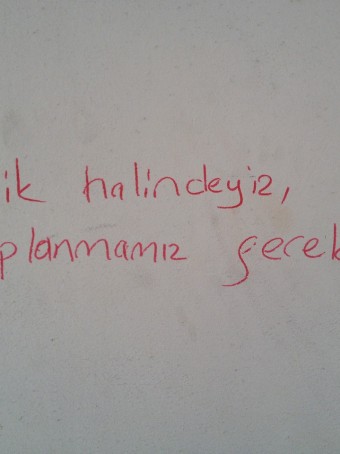 ik halindeyiz,
planmamız gerek